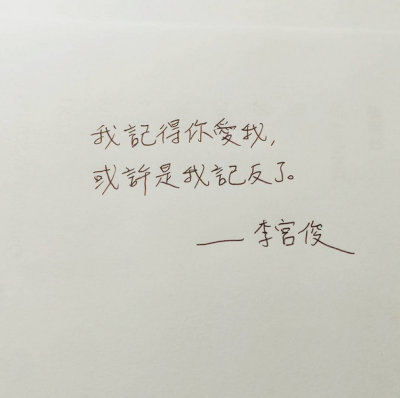 我記得你愛我,
或許是我記反了。
——李宮俊